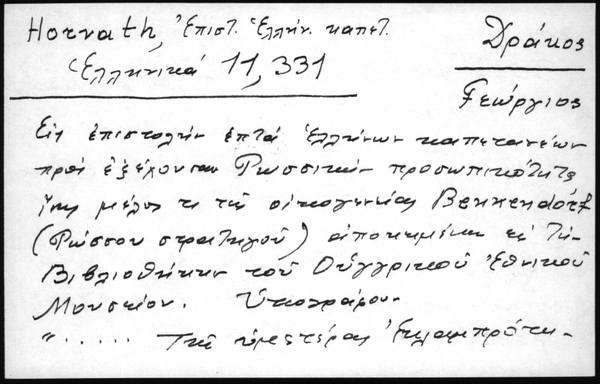 Horvath, Ἐπιστ. Ἑλλήν. καπετ.
Ἑλληνικά 11, 331
Δράκος
Γεώργιος
Εἰς ἐπιστολήν ἑπτά Ἑλλήνων καπετανέων
πρός ἐξέχουσαν Ρωσσικήν προσωπικότητα
μέλος τι τῆς οἰκογενείας Benkendorf
(Ρώσσου στρατηγοῦ) ἀποκειμένην εἰς τήν
Βιβλιοθήκην τοῦ Οὑγγρικοῦ Ἐθνικοῦ
Μουσείου. Ὑπογράφου-
"...... Τῆς ὑμετέρας Ἐκλαμπρότη-